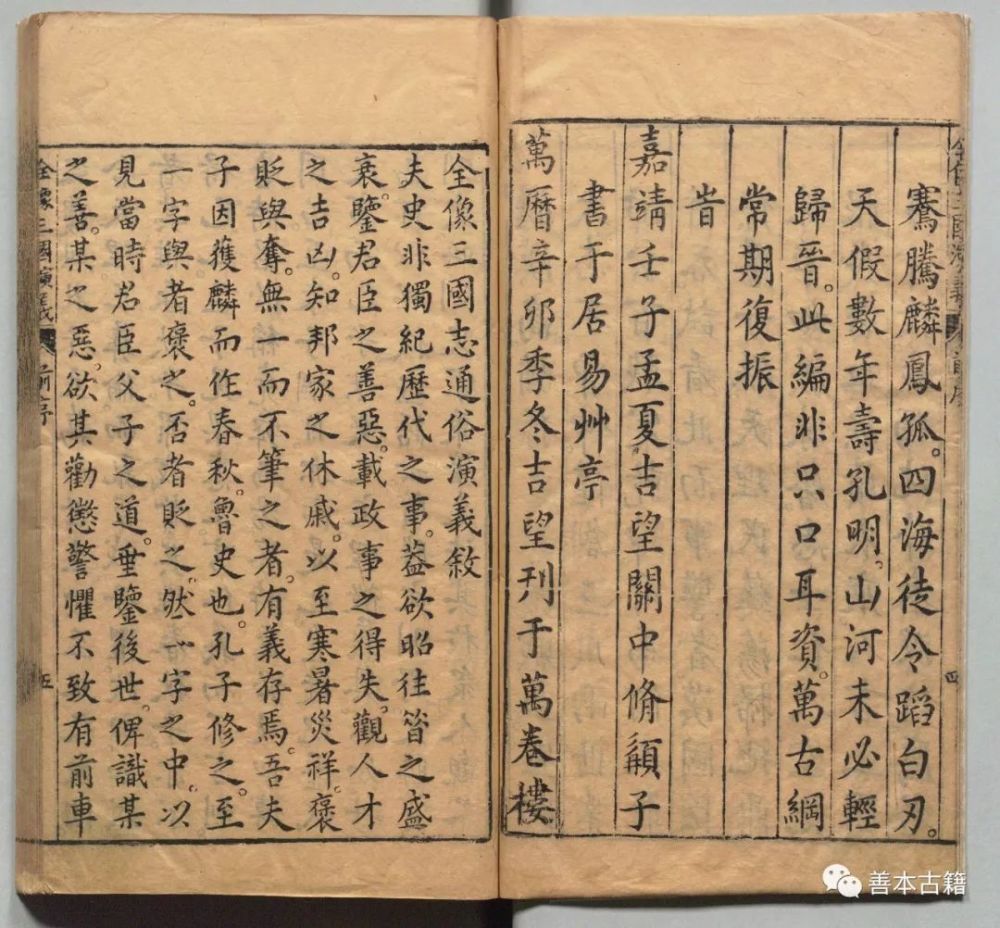 騫騰麟鳳孤。四海徒令蹈白刃。
天假數年壽孔明。山河未必輕
歸晉。此編非只口耳資。萬古綱
常期復振
旹
嘉靖壬子孟夏吉望關中脩髯子
書于居易艸亭
萬曆辛卯季冬吉望刊于萬卷樓
四
全像三國志通俗演義敘
夫史非獨紀歷代之事。葢欲昭往昔之盛
衰。鑒君臣之善惡。載政事之得失。觀人才
之吉凶。知邦家之休戚。以至寒暑災祥。褒
貶與奪。無一而不筆之者。有義存焉。吾夫
子因獲麟而作春秋。魯史也。孔子修之。至
一字與者褒之。否者貶之。然一字之中。以
見當時君臣父子之道。垂鑒後世。俾識某
之善。某之惡。欲其勸懲警懼不致有前車
全像三國演義 前序
五
善本古籍